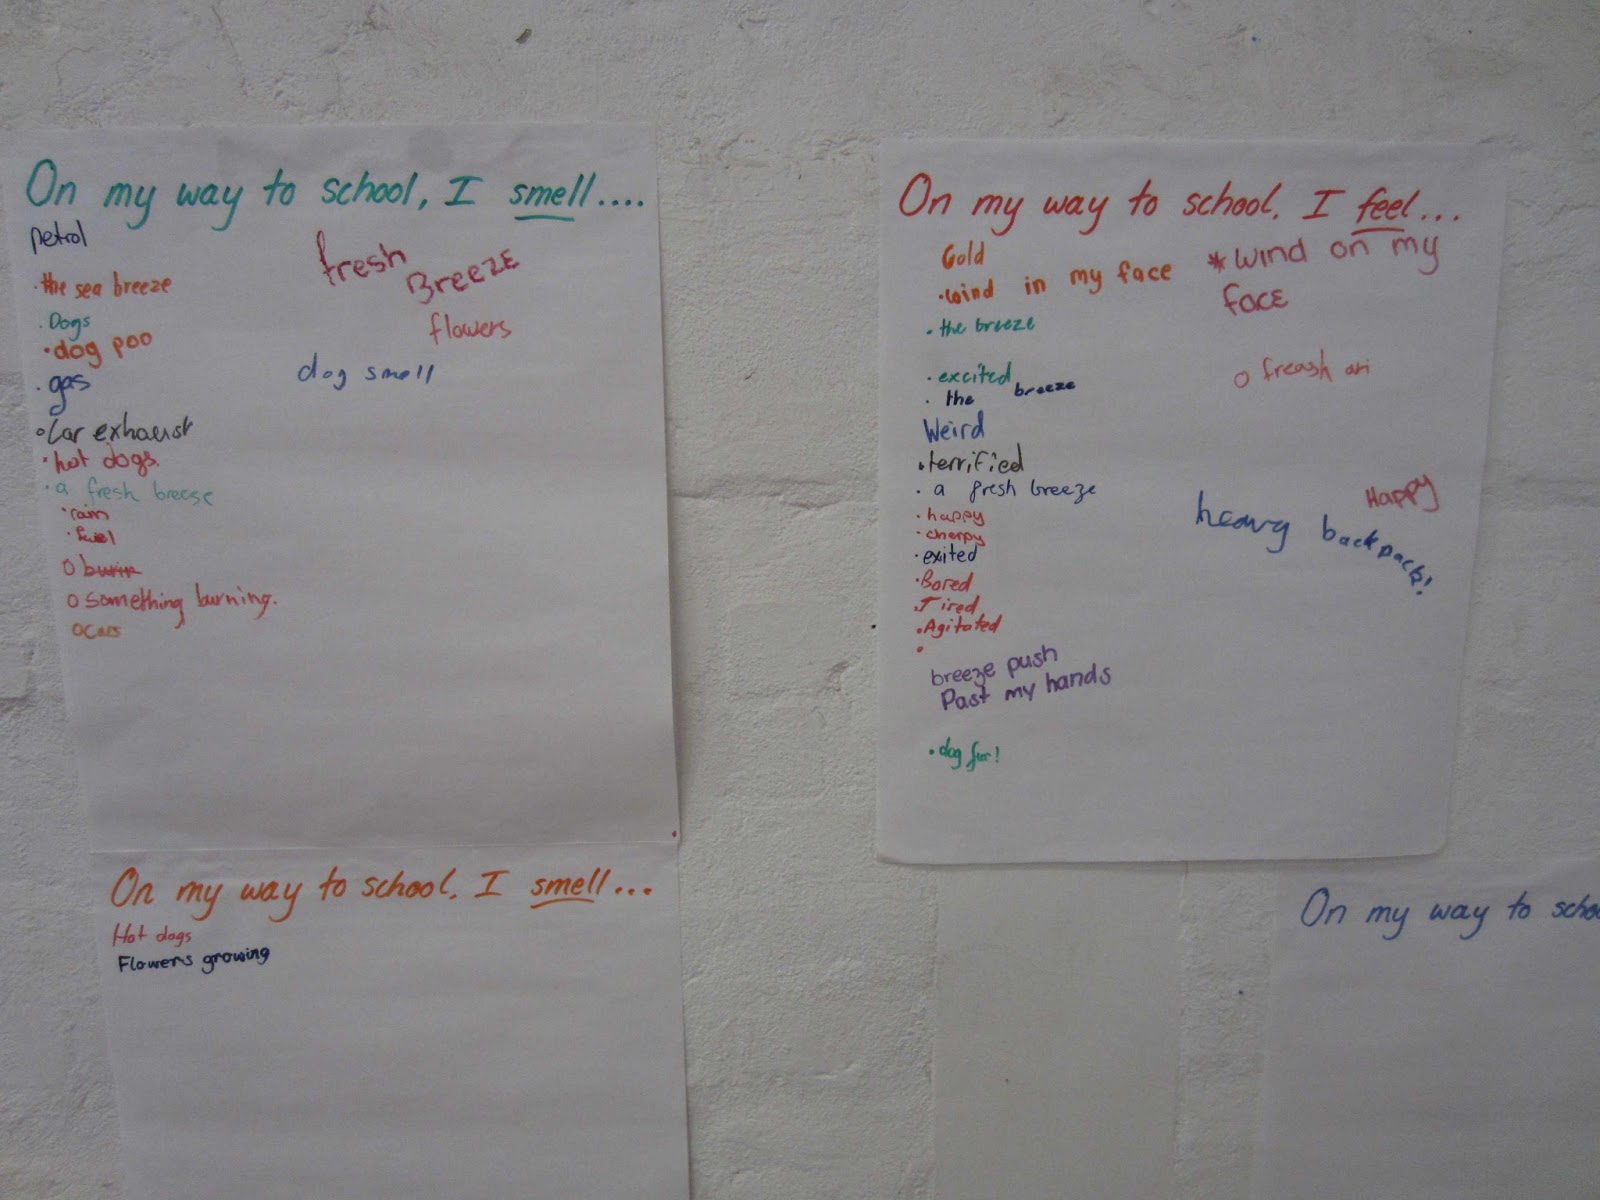 On my way to school, I smell....
petrol
• the sea breeze
• Dogs
• dog poo
• gas
• Car exhaust
• hot dogs.
• a fresh breese
• rain
• fuel
o burin
o something burning.
o cars
fresh
Breeze
flowers
dog smell
On my way to school. I smell...
Hot dogs
Flowers growing
On my way to school. I feel...
Cold
• wind in my face
• the breeze
• excited
• the breeze
Weird
• terrified
• a fresh breeze
• happy
• cherpy
• exited
• Bored
• Tired
• Agitated
•
breeze push
Past my hands
• dog fur!
* wind on my
face
o freash ari
Happy
heavy backpack!
On my way to scho